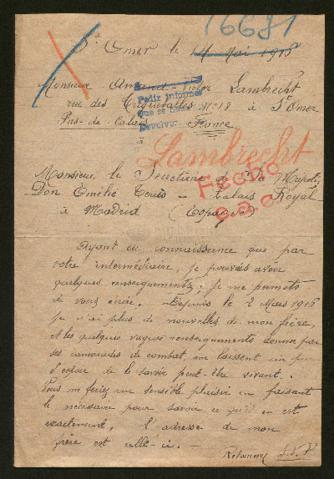 16681
St Omer le 14 Mai 1915
Monsieur Lambrecht
rue des N° 18 à St Omer
Pas-de-Calais France
Pedir informe
que se
Devolver
Lambrecht
Fecho
Monsieur le Secrétaire de S. M.
Don Emilio Palais Royal
à Madrid (Espagne)
Ayant eu connaissance que par
votre intermédiaire, je pouvais avoir
quelques renseignements, je me permets
de vous écrire. Depuis le 2 Mars 1915
je n'ai plus de nouvelles de mon frère,
et les quelques vagues renseignements donnés par
ses camarades de combat, me laissent un peu
d'espoir de le savoir peut-être vivant.
Vous me feriez un sensible plaisir en faisant
le nécessaire pour savoir ce qu'il en est
exactement, l'adresse de mon
frère est celle-ci. —
Retournez S.V.P.